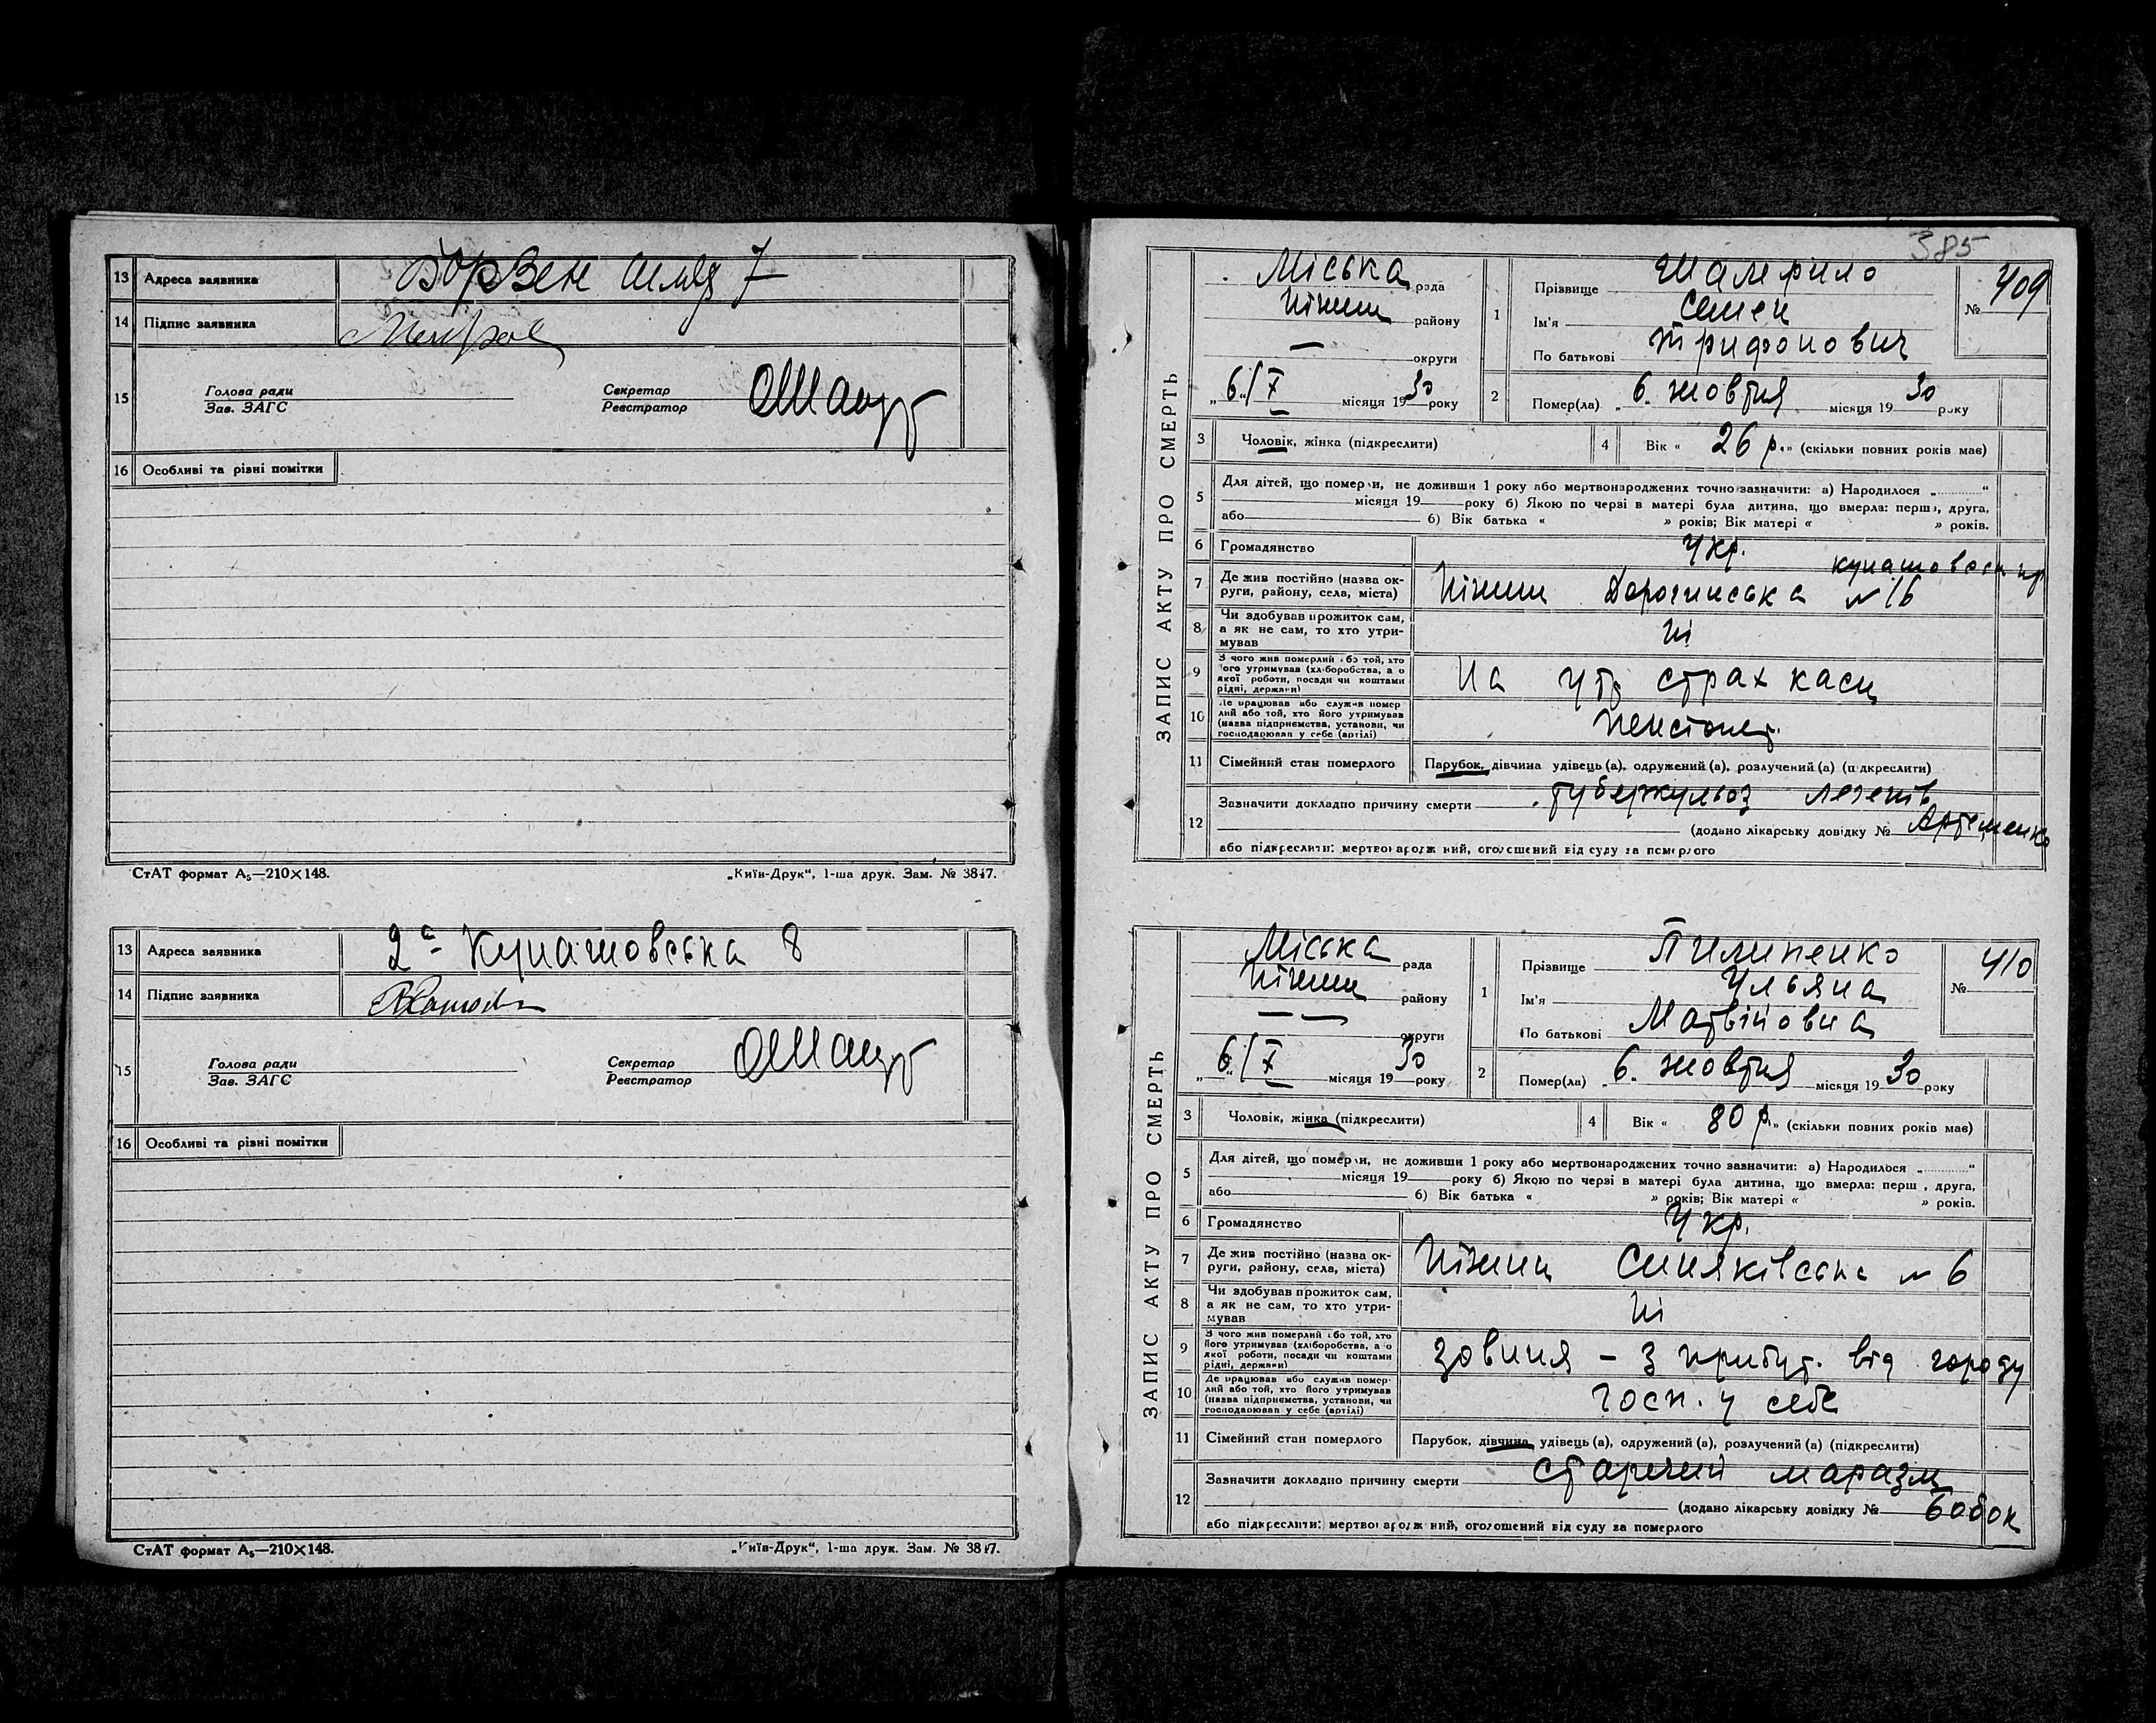 13 Адреса заявника Борзен шлях 7
14 Підпис заявника
15 Голова ради
Зав. ЗАГС
Секретар
Реєстратор
16 Особливі та різні помітки
СтАТ формат А₅—210×148. „Київ-Друк“, 1-ша друк. Зам. № 3817.
13 Адреса заявника 2а Кунашовська 8
14 Підпис заявника
15 Голова ради
Зав. ЗАГС
Секретар
Реєстратор
16 Особливі та різні помітки
СтАТ формат А₅—210×148. „Київ-Друк“, 1-ша друк. Зам. № 3817.
385
ЗАПИС АКТУ ПРО СМЕРТЬ
Міська рада
Ніжин району
— округи
„6“/X місяця 1930 року
1 Прізвище Шамрило
Ім'я Семен
По батькові Трифонович
№ 409
2 Помер(ла) „6“ жовтня місяця 1930 року
3 Чоловік, жінка (підкреслити)
4 Вік « 26 р.» (скільки повних років має)
5 Для дітей, що померли, не доживши 1 року або мертвонароджених точно зазначити: а) Народилося „ “
місяця 19 року б) Якою по черзі в матері була дитина, що вмерла: перша, друга,
або б) Вік батька « » років; Вік матері « » років.
6 Громадянство Укр.
7 Де жив постійно (назва округи, району, села, міста) Ніжин Дорогинська № 16
8 Чи здобував прожиток сам, а як не сам, то хто утримував Ні
9 З чого жив померлий або той, хто його утримував (хліборобства, а о якої роботи, посади чи коштами рідні, держави) На утр страх каси
10 Де працював або служив померлий або той, хто його утримував (назва підприємства, установи, чи господарював у себе (артілі) пенсіонер.
11 Сімейний стан померлого Парубок, дівчина удівець(а), одружений(а), розлучений(а) (підкреслити)
12 Зазначити докладно причину смерти туберкульоз легенів
(додано лікарську довідку № Артеменко
або підкреслити: мертвонароджений, оголошений від суду за померлого
ЗАПИС АКТУ ПРО СМЕРТЬ
Міська рада
Ніжин району
— — округи
„6“/X місяця 1930 року
1 Прізвище Пилипенко
Ім'я Ульяна
По батькові Матвійовна
№ 410
2 Помер(ла) „6“ жовтня місяця 1930 року
3 Чоловік, жінка (підкреслити)
4 Вік « 80 р.» (скільки повних років має)
5 Для дітей, що померли, не доживши 1 року або мертвонароджених точно зазначити: а) Народилося „ “
місяця 19 року б) Якою по черзі в матері була дитина, що вмерла: перш , друга,
або б) Вік батька « » років; Вік матері « » років.
6 Громадянство Укр.
7 Де жив постійно (назва округи, району, села, міста) Ніжин Синяківська № 6
8 Чи здобував прожиток сам, а як не сам, то хто утримував Ні
9 З чого жив померлий або той, хто його утримував (хліборобства, а о якої роботи, посади чи коштами рідні, держави) зовиця – з прибут. від городу
10 Де працював або служив померлий або той, хто його утримував (назва підприємства, установи, чи господарював у себе (артілі) госп. у себе
11 Сімейний стан померлого Парубок, дівчина, удівець(а), одружений(а), розлучений(а) (підкреслити)
12 Зазначити докладно причину смерти старечий маразм
(додано лікарську довідку № Бобок
або підкреслити: мертвонароджений, оголошений від суду за померлого